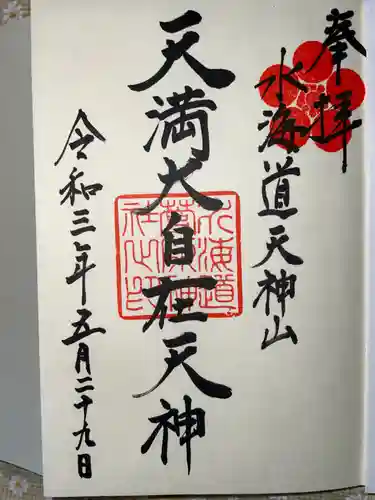 奉拝
水海道天神山
天満大自在天神
令和三年五月二十九日